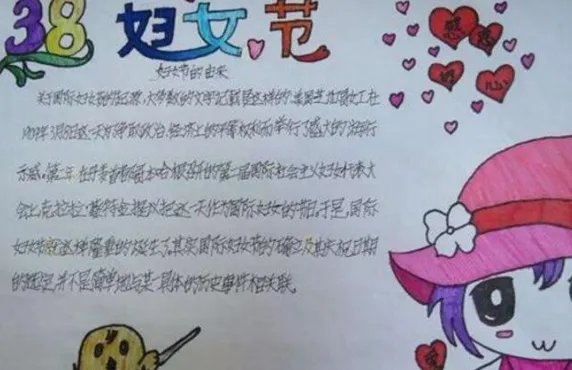 38 妇女节
感恩
爱心
妇女节的由来
关于国际妇女节的起源,大多数的文字记载是这样的:美国芝加哥女工在
1909年3月8日这一天为争取政治、经济上的平等权利而举行了盛大的游行
示威,第二年,在丹麦哥本哈根召开的第二届国际社会主义妇女代表大
会上,克拉拉·蔡特金提议把这一天作为国际妇女的节日。于是,国际
妇女节就这样隆重的诞生了。其实,国际妇女节的确立及其庆祝日期
的选定,并不是简单地与某一具体的历史事件相关联。